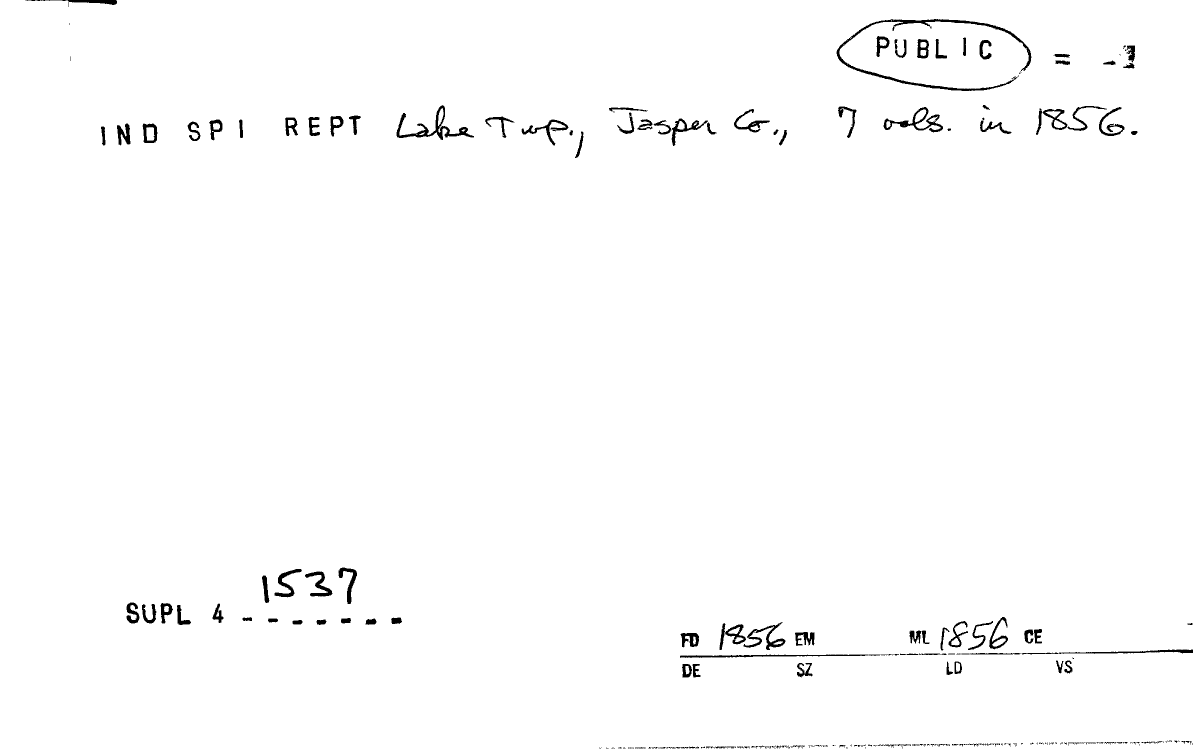 PUBLIC = -1
IND SPI REPT Lake Twp., Jasper Co., 7 vols. in 1856.
1537
SUPL 4 -------
FD 1856 EM ML 1856 CE
DE SZ LD VS